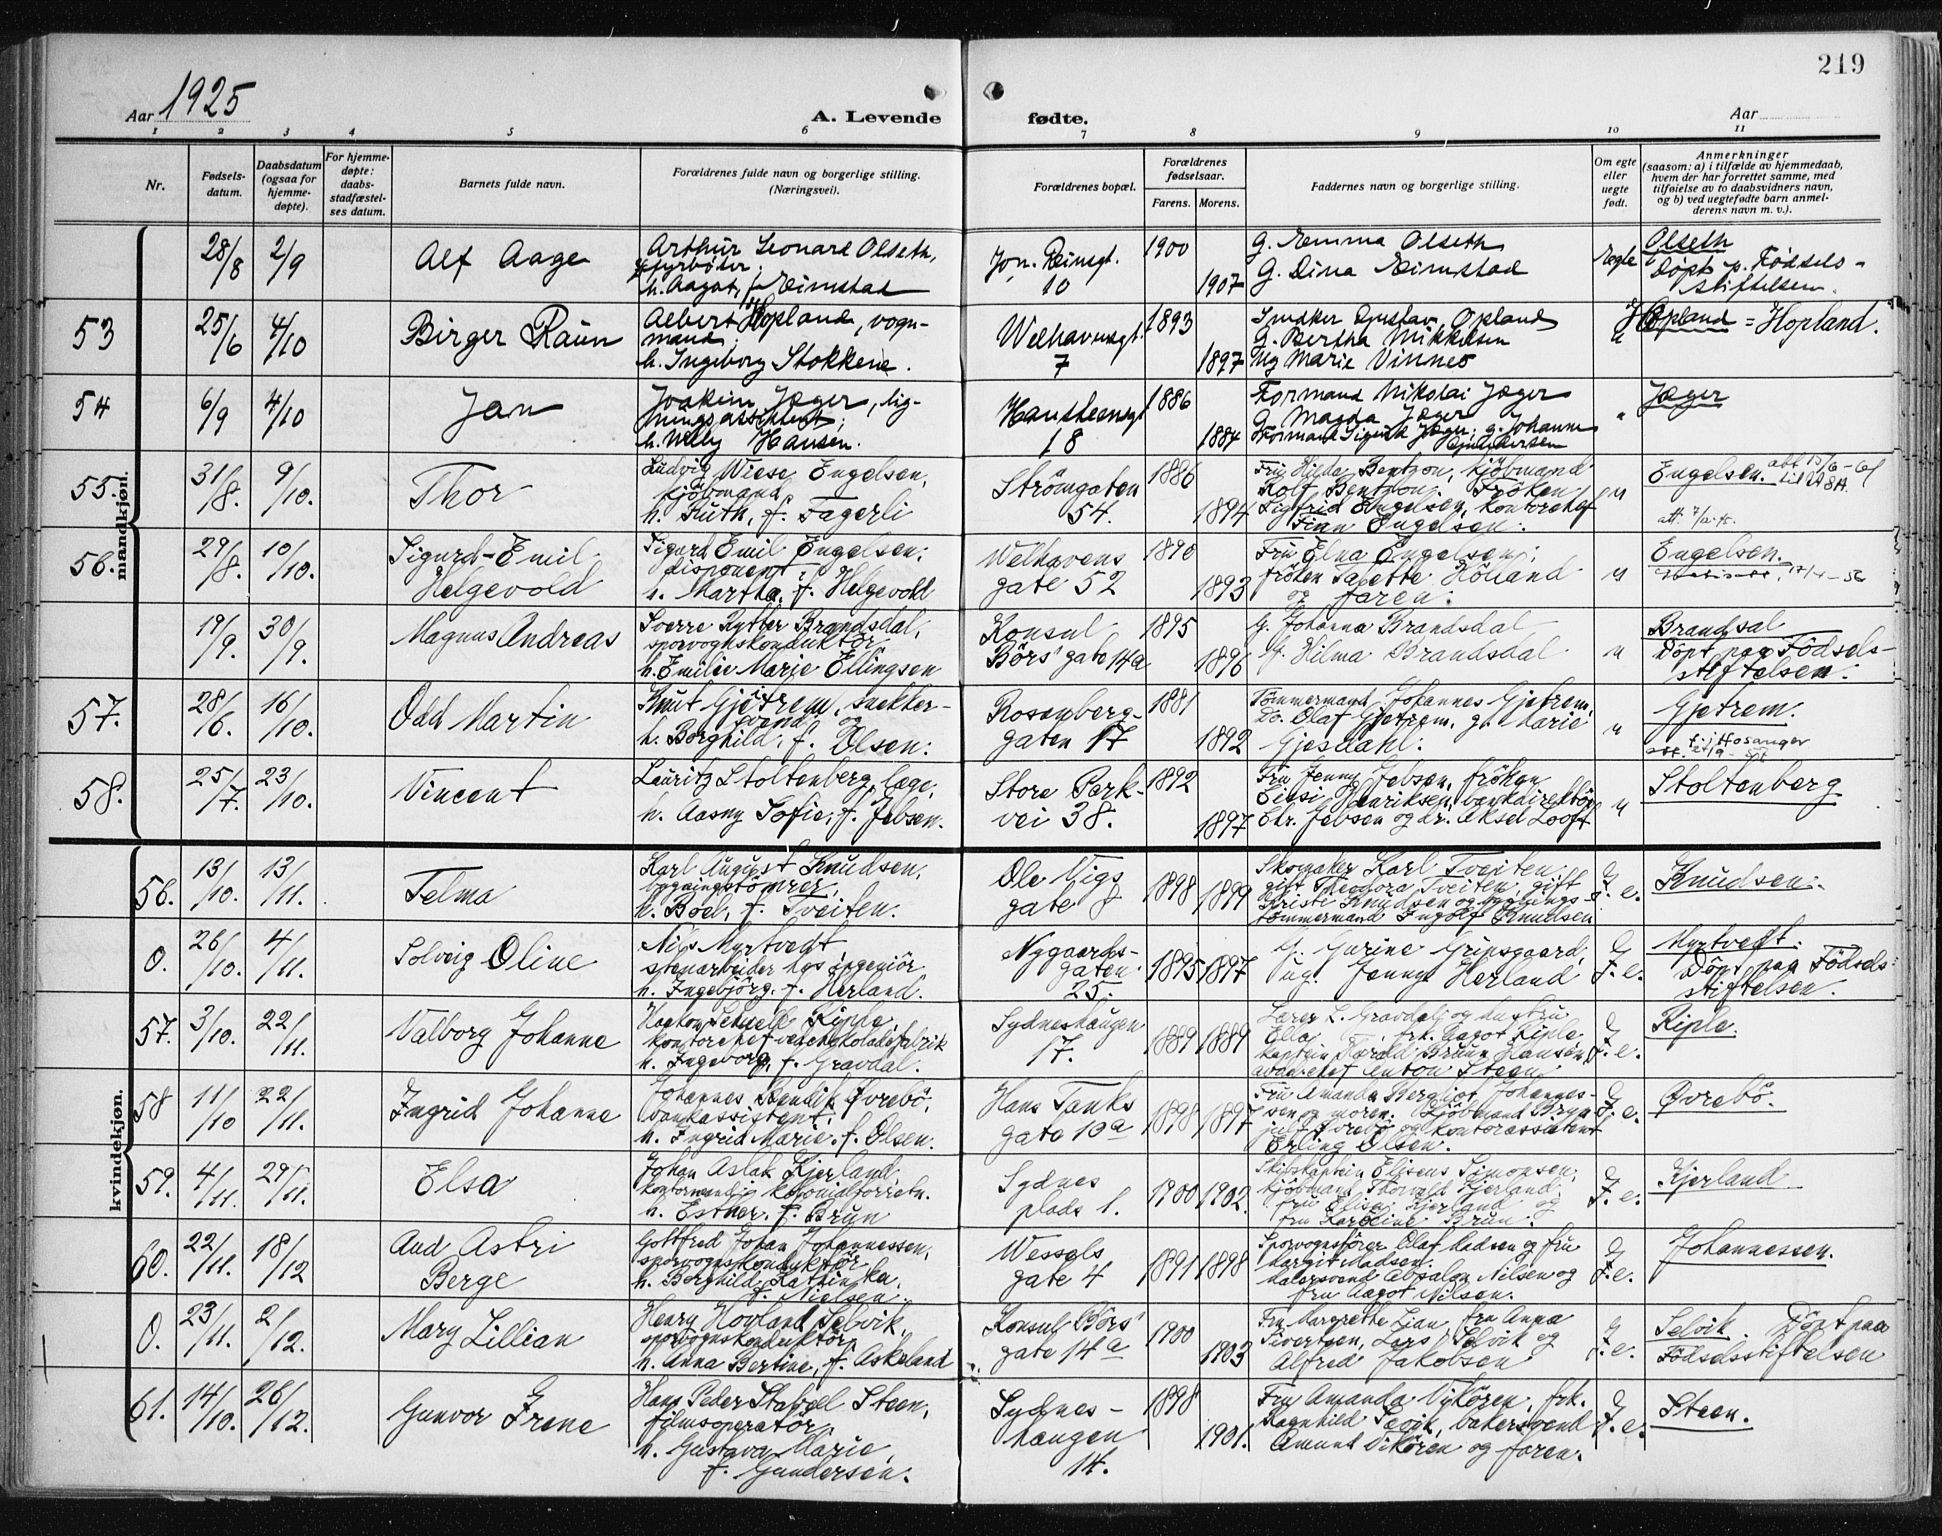 219
Aar 1925
A. Levende fødte.
Aar
1 2 3 4 5 6 7 8 9 10 11
Nr.
Fødsels-
datum.
Daabsdatum
(ogsaa for
hjemme-
døpte).
For hjemme-
døpte:
daabs-
stadfæstel-
ses datum.
Barnets fulde navn.
Forældrenes fulde navn og borgerlige stilling.
(Næringsvei).
Forældrenes bopæl.
Forældrenes
fødselsaar.
Farens. Morens.
Faddernes navn og borgerlige stilling.
Om egte
eller
uegte
født.
Anmerkninger
(saasom: a) i tilfælde av hjemmedaab,
hvem der har forrettet samme, med
tilføielse av to daabsvidners navn,
og b) ved uegtefødte barn anmel-
derens navn m. v.).
mandkjøn.
28/8 2/9 Alf Aage
Arthur Leonard Olseth,
fyrbøter,
h. Aagot, f. Eimstad
Jon. Reinsgt.
10
1900 1907
G. Emma Olseth
G. Dina Eimstad
Egte
Olseth
Døpt p. Fødsels-
stiftelsen.
53 25/6 4/10 Birger Raun
Albert Hopland, vogn-
mand,
h. Ingeborg Stokkene.
Welhavensgt.
7
1893 1897
Smaker Gustav Opland
G. Bertha Mikkelsen
Ug Marie Vinnes
Hopland = Hopland.
54 6/9 4/10 Jan
Joakim Jæger, lig-
ningsassistent;
h. Hansen.
Hansteensgt
18
1886 1884
Formand Nikolai Jæger
G. Magda Jæger
Formand Sigurd Jæger; g. Johanne
"
Jæger
55. 31/8. 9/10. Thor
Ludvig Wiese Engelsen,
kjöbmand,
h. Ruth, f. Fagerli
Strömgaten
54.
1886 1894
Fru Hilda Bentzon, kjöbmand
Rolf Bentzon. Fröken
Sigfrid Engelsen, kontorchef
Finn Engelsen.
"
Engelsen.
56. 29/8. 10/10. Sigurd-Emil
Helgevold
Sigurd Emil Engelsen;
disponent;
h. Martha, f. Helgevold
Welhavens
gate 52
1890 1893
Fru Elna Engelsen;
fröken Salette Hölland
og faren.
"
Engelsen.
17/4-56
19/9. 30/9. Magnus Andreas
Sverre Rytter Brandsdal,
sporvognskonduktör,
h. Emilie Marie Ellingsen
Konsul
Börs' gate 14a
1895 1896
G. Johanna Brandsdal
G. Hilma Brandsdal
"
Brandsal
Döpt paa Födsels-
stiftelsen.
57. 28/6. 16/10. Odd Martin
Knut Gjetrem, snekker-
svend, og
h. Borghild, f. Olsen.
Rosenberg-
gaten 17
1881 1892
Tömmermand Johannes Gjetrem,
Do. Olaf Gjetrem, g. Marie
Gjesdahl.
"
Gjetrem.
Hosanger
58. 25/7. 23/10. Vincent
Lauritz Stoltenberg, læge,
h. Aasny Sofie, f. Jebsen.
Store Park-
vei 38.
1892 1897
Fru Jenny Jebsen, fröken
Henriksen, bankdirektör
Chr. Jebsen og dr. Aksel Looft
"
Stoltenberg
kvindekjøn.
56. 13/10. 13/11. Telma
Karl August Knudsen,
bygningstömrer,
h. Boel, f. Tveiten.
Ole Vigs
gate 8
1898 1899
Skomaker Karl Tveiten,
gift Theodora Tveiten, gift
Kristi Knudsen og bygnings-
tömmermand Ingolf Knudsen
J. e.
Knudsen.
0. 26/10. 4/11. Solveig Oline
Nils Myrtvedt,
stenarbeider hos ingeniör,
h. Ingebjörg, f. Herland.
Nygaards-
gaten
25.
1895 1897
G. Garine Gripsgaard,
ug. Jenny Herland
J. e.
Myrtvedt.
Döpt paa Födsels-
stiftelsen.
57. 3/10. 22/11. Valborg Johanne
Haakon Riple,
kontorchef ved chokoladefabrik
h. Ingeborg, f. Gravdal.
Sydneshaugen
17.
1889 1889
Lærer L. Gravdal og hustru
Ella, frk. Aagot Riple,
kaptein Harald Bruun Hansen
avd.chef Anton Steen
J. e.
Riple.
58 11/10 22/11. Ingrid Johanne
Johannes Bendik Øvrebö,
bankassistent,
h. Ingrid Marie, f. Olsen.
Hans Tanks
gate 10a
1898 1897
Fru Amanda Bergliot Johannes-
sen og moren. Kjöbmand Bryn-
julf Øvrebö og kontorassistent
Erling Olsen.
J. e.
Øvrebö.
59. 4/11. 29/11. Elsa
Johan Aslak Kjerland,
kontormand i kolonialforretn.
h. Esther, f. Brun
Sydnes
plads 1.
1900 1902.
Skibskaptein Elisens Simonsen,
kjöbmand Thorvald Kjerland,
fru Elisa Kjerland og
fru Karoline Brun.
J. e.
Kjerland.
60. 22/11. 18/12 Aud Astri
Berge
Gottfred Johan Johannessen,
sporvognskonduktör,
h. Borghild Kathinka,
f. Nielsen.
Wessels
gate 4
1891 1898
Sporvognsförer Olaf Madsen og fru
Margit Madsen.
Malersvend Absalon Nilsen og
fru Aagot Nilsen.
J. e.
Johannessen.
0. 23/11. 2/12. Mary Lillian
Henry Hovland Selvik,
sporvognskonduktör,
h. Anna Bertine, f. Askeland
Konsul Börs'
gate 14a
1900 1903
Fru Margrethe Lian, fru Anna
Sivertsen, Lars Selvik og
Alfred Jakobsen
J. e.
Selvik. Döpt paa
Födselsstiftelsen
61. 14/10. 26/12. Gunvor Irene
Hans Peder Stabell Steen,
filmsoperatör,
h. Gustava Marie,
f. Gundersen.
Sydnes-
haugen
14.
1898 1901.
Fru Amanda Vikören, frk.
Ragnhild Sævik, bakersvend
Amund Vikören og faren.
J. e.
Steen.